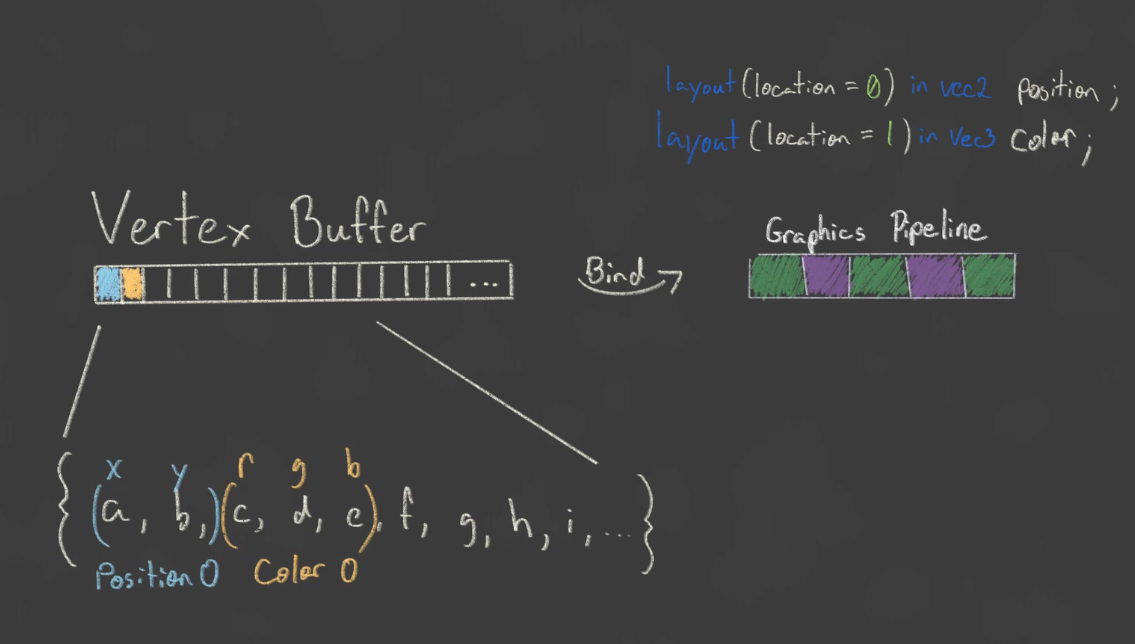 layout (location = 0) in vec2 Position;
layout (location = 1) in vec3 Color;
Vertex Buffer
...
Bind
Graphics Pipeline
x y r g b
{(a, b,)(c, d, e), f, g, h, i, ...}
Position 0 Color 0